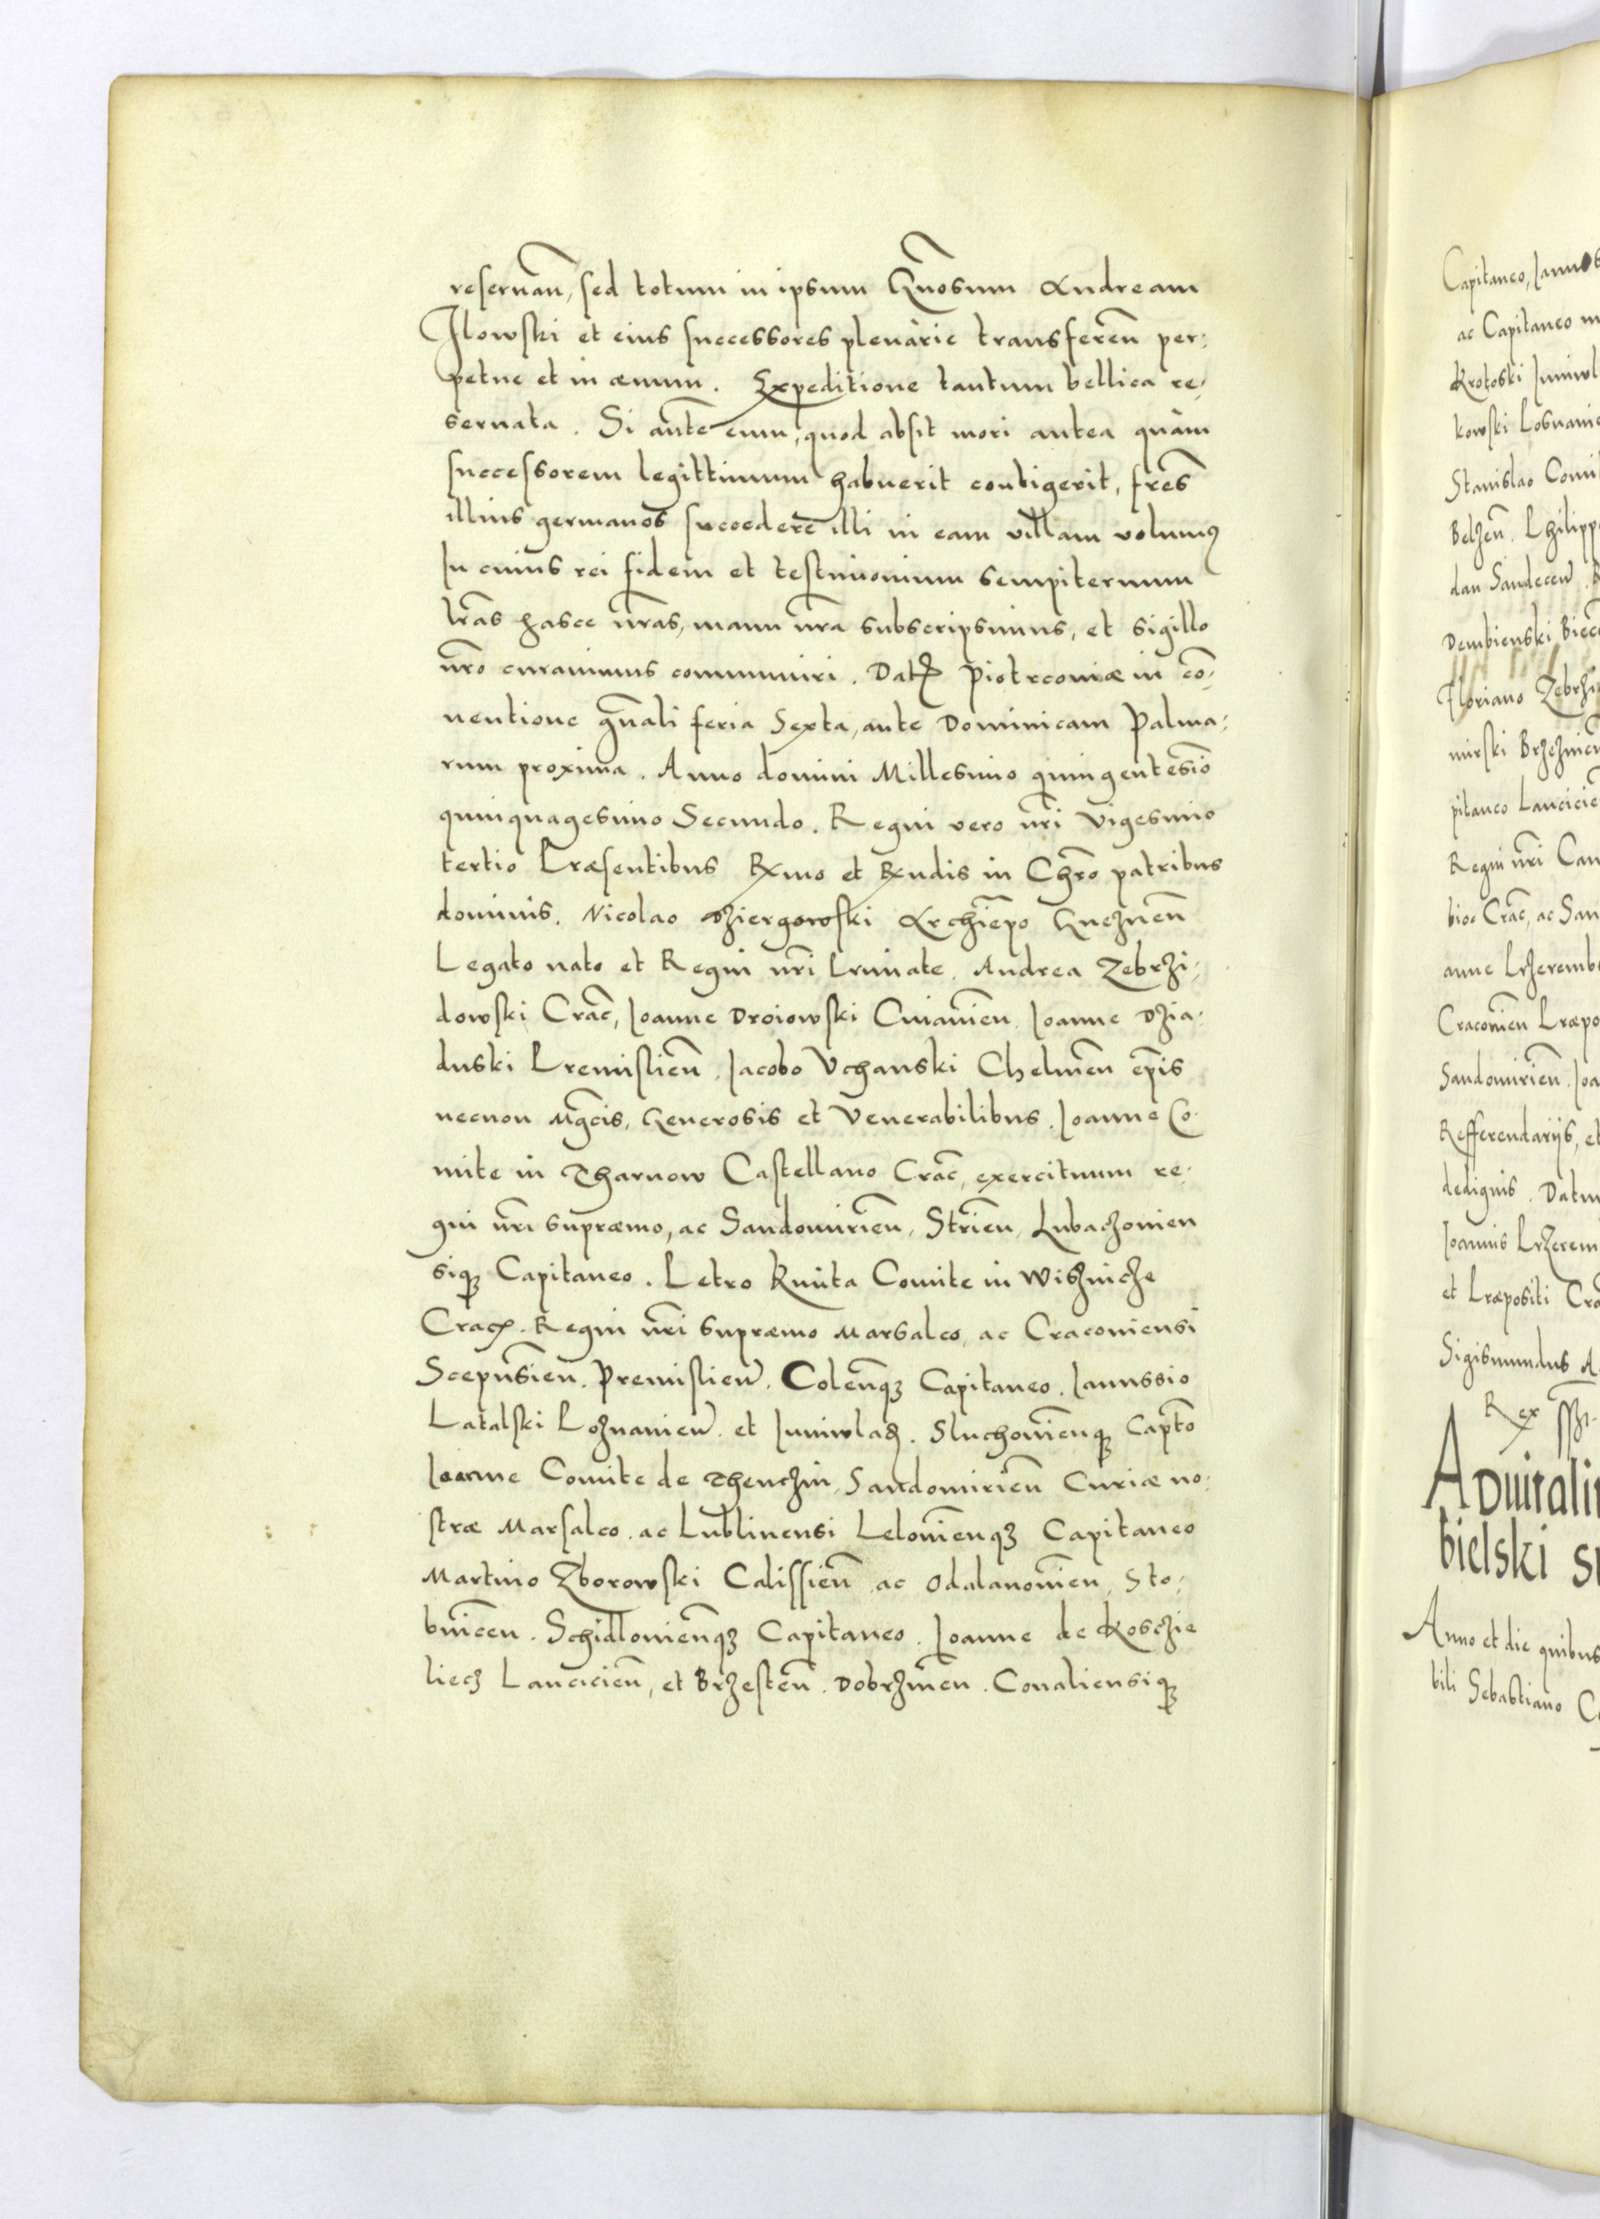 reseruan̄, sed totum in ipsum Gn̄osum Andream
Ilowski et eius successores plenàrie transferen̄ per,
petue et in æuum. Expeditione tantum bellica re,
seruata. Si aūte eum, quod absit mori antea quàm
successorem legittimum habuerit contigerit, frēs
illius germanos succedere illi in eam villam volumꝰ
In cuius rei fidem et testimonium sempiternum
lrās hasce nr̄as, manu nr̄a subscripsimus, et sigillo
nr̄o curauimus communiri. Datꝭ Piotrcouiæ in cō,
uentione gn̄ali feria Sexta, ante Dominicam Palma,
rum proxima. Anno domini Millesimo quingentesīo
quinquagesimo Secundo. Regni vero nr̄i Vigesimo
tertio Præsentibus Rx̄mo et Rx̄ndis in Chr̄o patribus
dominis. Nicolao Dziergowski Archiēpo Gneznen̄
Legato nato et Regni nr̄i Primate. Andrea Zebrzi,
dowski Crac̄, Ioanne Droiowski Cuiauien̄. Ioanne Dzia,
duski Premislien̄. Iacobo Vchanski Chelmen̄ ep̄is
necnon Mḡcis, Generosis et Venerabilibus. Ioanne Co,
mite in Tharnow Castellano Crac̄, exercituum re,
gni nr̄i supræmo, ac Sandomirien̄, Strien̄, Lubaczouien
siqꝫ Capitaneo. Petro Kmita Comite in Wisznicze
Cracꝭ. Regni nr̄i supræmo Marsalco, ac Cracouiensi
Scepusīen. Premislien̄. Colen̄qꝫ Capitaneo. Ianussio
Latalski Poznanien̄. et Iuniwladꝭ. Sluchouien̄qꝫ Capt̄o
Ioanne Comite de Thenczin Sandomirien̄ Curiæ no,
stræ Marsalco. ac Lublinensi Lelouien̄qꝫ Capitaneo
Martino Zborowski Calissien̄ ac Odalanouien̄, Sto,
bnicen̄. Schidlouien̄qꝫ Capitaneo. Ioanne de Koschie
liecz Lancicien̄, et Brzesten̄. Dobrzinen̄. Coualiensiqꝫ
Capitaneo, Ianus
ac Capitaneo
Krotoski Iuniwl
kowski
Stanislao Comi
Belzen̄. Philipp
dan Sandecen̄.
Dembienski Biec
Floriano Zebrzi
mirski Brzezinen̄
pitaneo Lancicien̄
Regni nr̄i Can
Crac̄, ac San
anne Przeremb
Cracouien̄ Præpo
Sandomirien̄. Ioa
Refferendarijs, et
dedignis. Datu
Ioannis Przerem
et Præpositi Cra
Sigismundus A
Rex
bielski
Anno et die quibus
bili Sebastiano